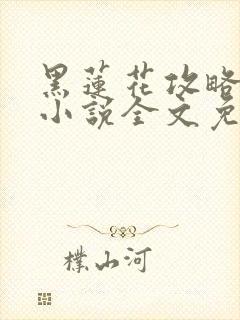 黑蓮花攻略
小說全文免
樸山河